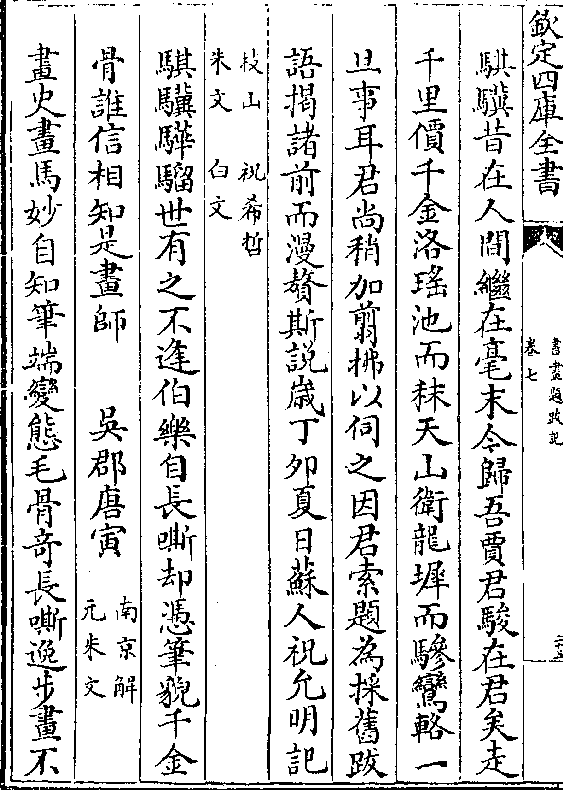 欽定四庫全書
書畫題跋記
卷七
騏驥昔在人間繼在毫末今歸吾賈君駿在君矣走
千里價千金洛瑤池而秣天山衛龍墀而驂鸞輅一
旦事耳君尚稍加翦拂以伺之因君索題為採舊跋
語揭諸前而漫贅斯說嵗丁夘夏日蘇人祝允明記
枝山 祝希哲
朱文 白文
騏驥驊騮世有之不逢伯樂自長嘶却憑筆貌千金
骨誰信相知是畫師 吳郡唐寅 南京解
元朱文
畫史畫馬妙自知筆端變態毛骨奇長嘶逸步畫不